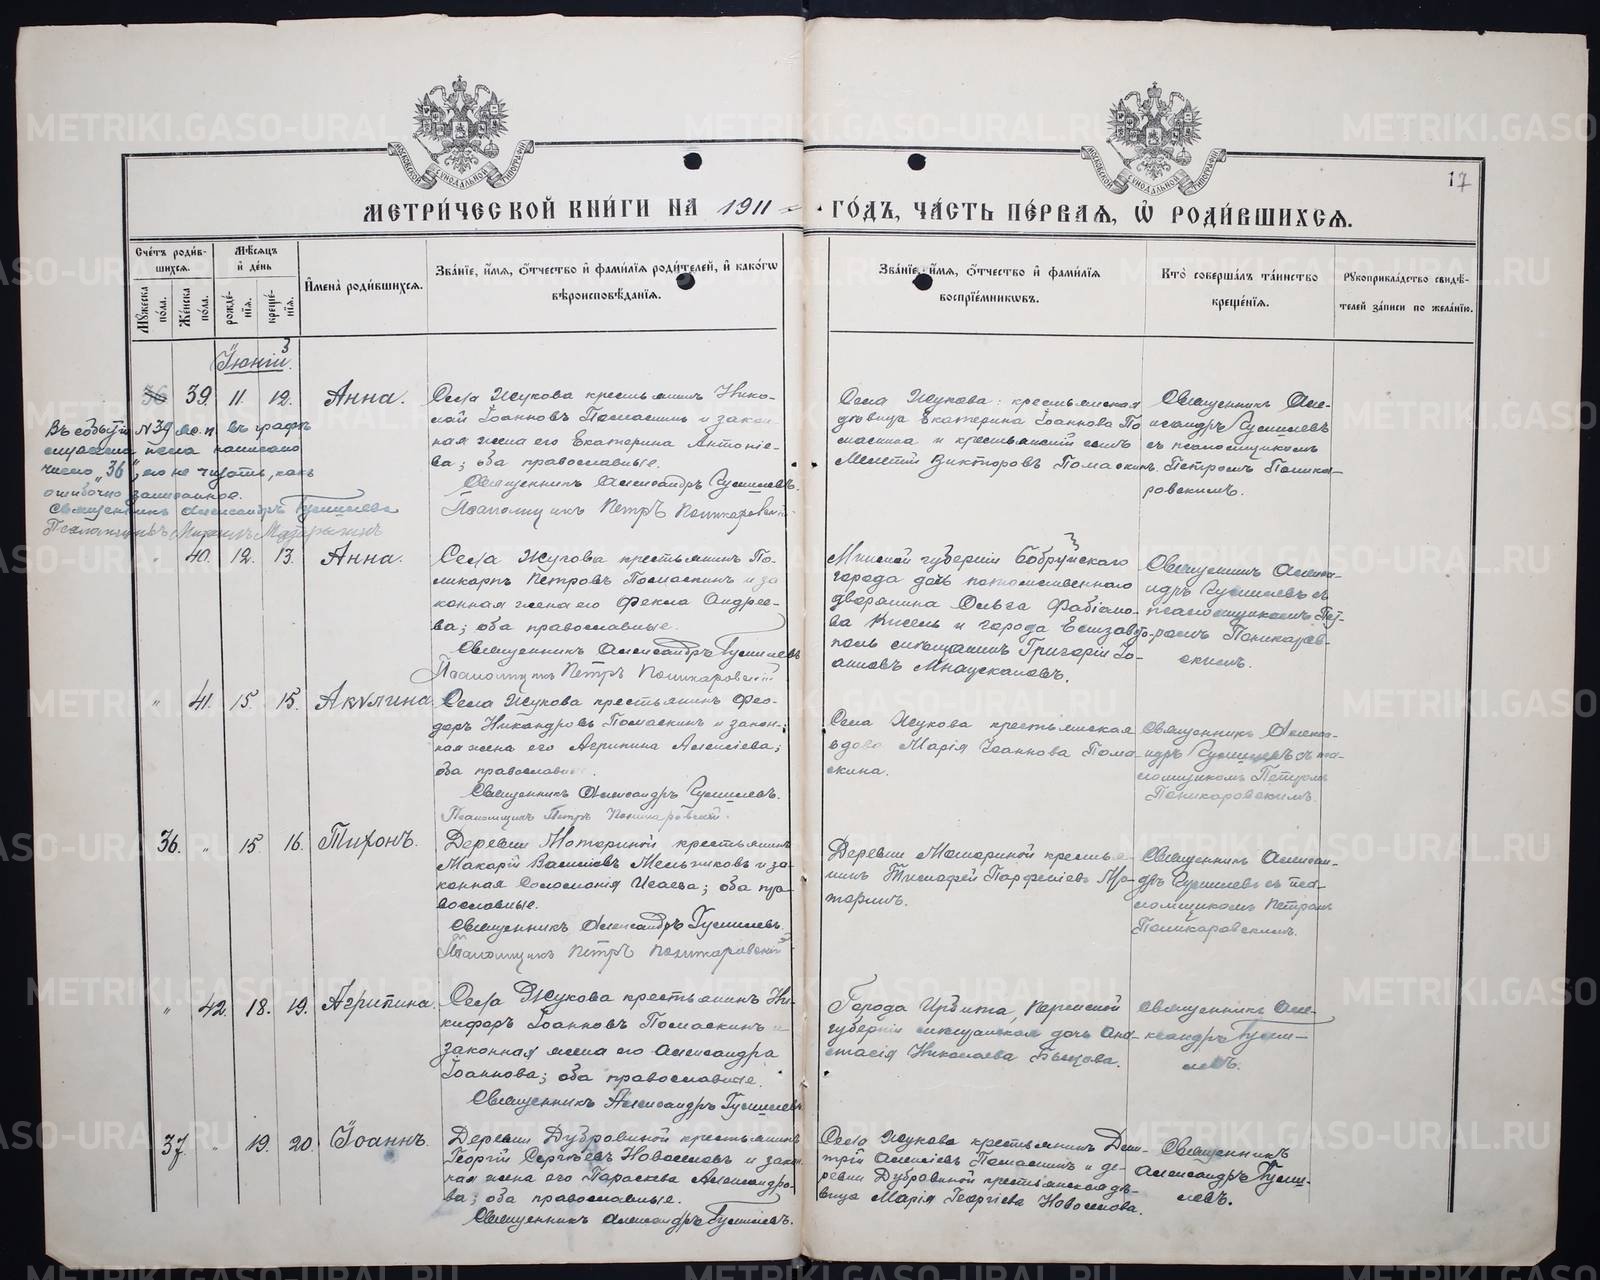 МЕТРИ́ЧЕСКОЙ КНИ́ГИ НА 1911 ГО́ДЪ, ЧА́СТЬ ПЕ́РВАЯ, Ѡ҆ РОДИ́ВШИХСЯ.
17
МОСКОВСКОЙ СѴНОДАЛЬНОЙ ТИПОГРАФІИ
МОСКОВСКОЙ СѴНОДАЛЬНОЙ ТИПОГРАФІИ
Сче́тъ роди́в-
шихся.
Мужеска пола.
Же́нска пола.
Мѣ́сяцъ
и҆ де́нь
рожде́-
нїя.
креще́-
нїя.
И҆мена̀ роди́вшихся.
Зва́нїе, и҆́мя, ѻ҆́тчество и҆ фами́лїя роди́телей, и҆ како́гѡ
вѣроисповѣ́данїя.
Зва́нїе, и҆́мя, ѻ҆́тчество и҆ фами́лїя
воспрїе́мникѡвъ.
Кто̀ соверша́лъ та́инство
креще́нїя.
Рукоприкла́дство свидѣ́-
телей за́писи по жела́нїю.
Іюній
3
36 39. 11. 12. Анна.
Села Жукова крестьянинъ Нико-
лай Іоанновъ Помаскинъ и закон-
ная жена его Екатерина Антоніе-
ва; оба православные.
Священникъ Александръ Гумилевъ.
Псаломщикъ Петръ Поникаровскій
Села Жукова: крестьянская
дѣвица Екатерина Іоаннова По
маскина и крестьянскій сынъ
Мелетій Викторовъ Помаскинъ.
Священникъ Але-
ксандръ Гумилевъ
съ псаломщикомъ
Петромъ Поника-
ровскимъ.
Въ событіи №39 въ графѣ
мужеска пола написано
число „36“, его не читать, какъ
ошибочно записанное.
Священникъ Александръ Гумилевъ
Псаломщикъ
„ 40. 12. 13. Анна.
Села Жукова крестьянинъ По-
ликарпъ Петровъ Помаскинъ и за
конная жена его Фекла Андрее-
ва; оба православные.
Священникъ Александръ Гумилевъ
Псаломщикъ Петръ Поникаровскій
Минской губерніи Бобруйскаго
города дочь потомственнаго
дворянина Ольга Фабіано-
ва Кисель и города Елизавето-
поль мѣщанинъ Григорій Іо-
анновъ Мнацакановъ.
Священникъ Алекса-
ндръ Гумилевъ съ
псаломщикомъ Пет-
ромъ Поникаров-
скимъ.
„ 41. 15. 15. Акулина
Села Жукова крестьянинъ Фео-
доръ Никандровъ Помаскинъ и закон-
ная жена его Агрипина Алексіева;
оба православные.
Священникъ Александръ Гумилевъ.
Псаломщикъ Петръ Поникаровскій.
Села Жукова крестьянская
вдова Марія Іоаннова Пома
скина.
Священникъ Алекса-
ндръ Гумилевъ съ пса-
ломщикомъ Петромъ
Поникаровскимъ.
36. „ 15. 16. Тихонъ.
Деревни Мотариной крестьянинъ
Макарій Василіевъ Мельниковъ и за-
конная Соломонія Исаева; оба пра-
вославные.
Священникъ Александръ Гумилевъ.
Псаломщикъ Петръ Поникаровскій
Деревни Мотариной крестья-
нинъ Тимофей Парфеніевъ Мо-
таринъ.
Священникъ Алексан-
дръ Гумилевъ съ пса-
ломщикомъ Петромъ
Поникаровскимъ.
„ 42. 18. 19. Агрипина.
Села Жукова крестьянинъ Ни-
кифоръ Іоанновъ Помаскинъ и
законная жена его Александра
Іоаннова; оба православные.
Священникъ Александръ Гумилевъ
Города Ирбита, Пермской
губерніи мѣщанская дочь Ана-
стасія Николаева
Священникъ Але-
ксандръ Гуми-
левъ.
37. „ 19. 20. Іоаннъ.
Деревни Дубровиной крестьянинъ
Георгій Сергѣевъ Новоселовъ и закон-
ная жена его Параскева Александро-
ва; оба православные.
Священникъ Александръ Гумилевъ.
Села Жукова крестьянинъ Дми-
трій Алексіевъ Помаскинъ и де-
ревни Дубровиной крестьянская дѣ-
вица Марія Георгіева Новоселова.
Священникъ
Александръ Гуми-
левъ.
METRIKI.GASO-URAL.RU